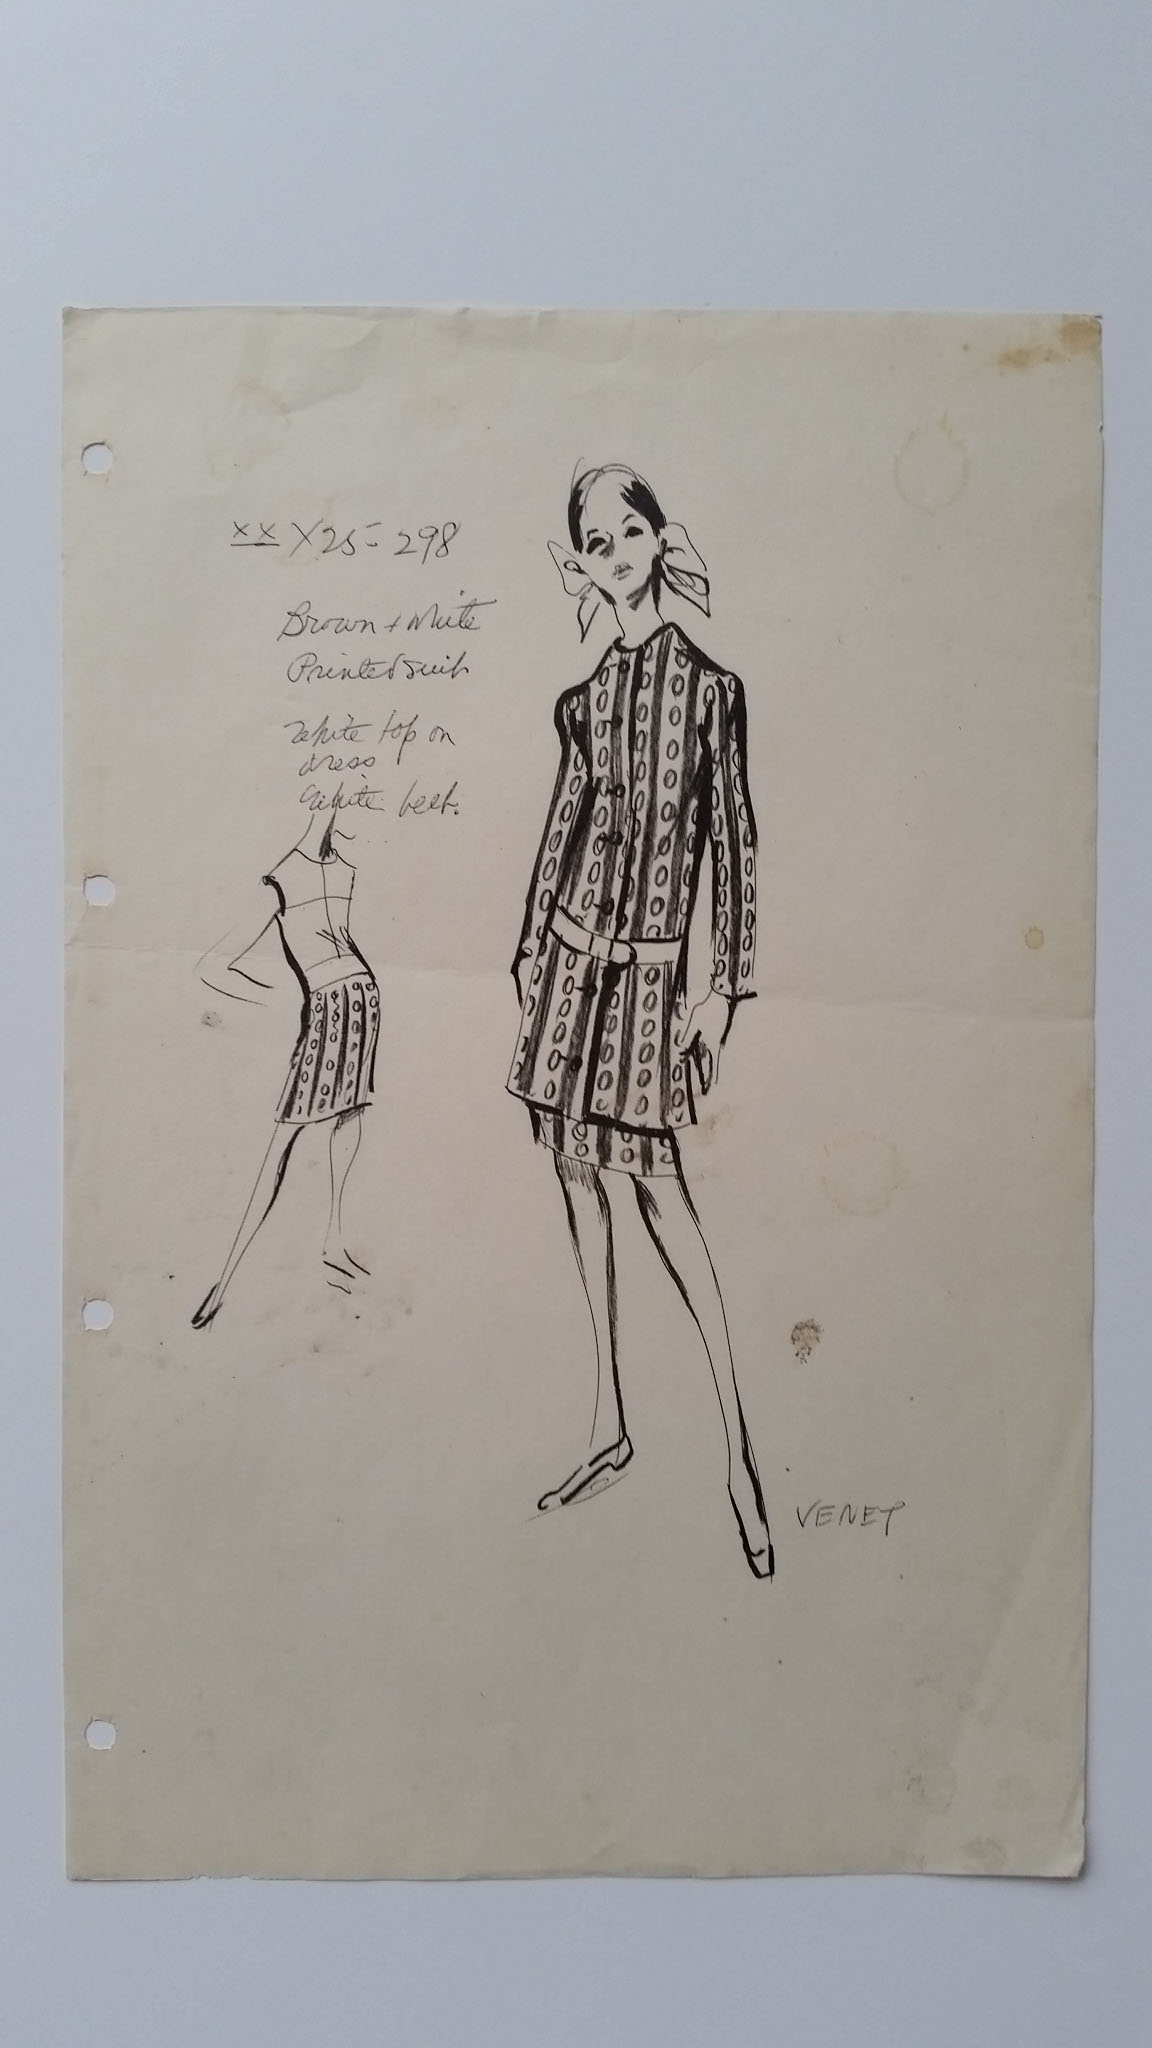 xx X25-298
Brown + White
Printed suit
White top on
dress
White belt.
VENET